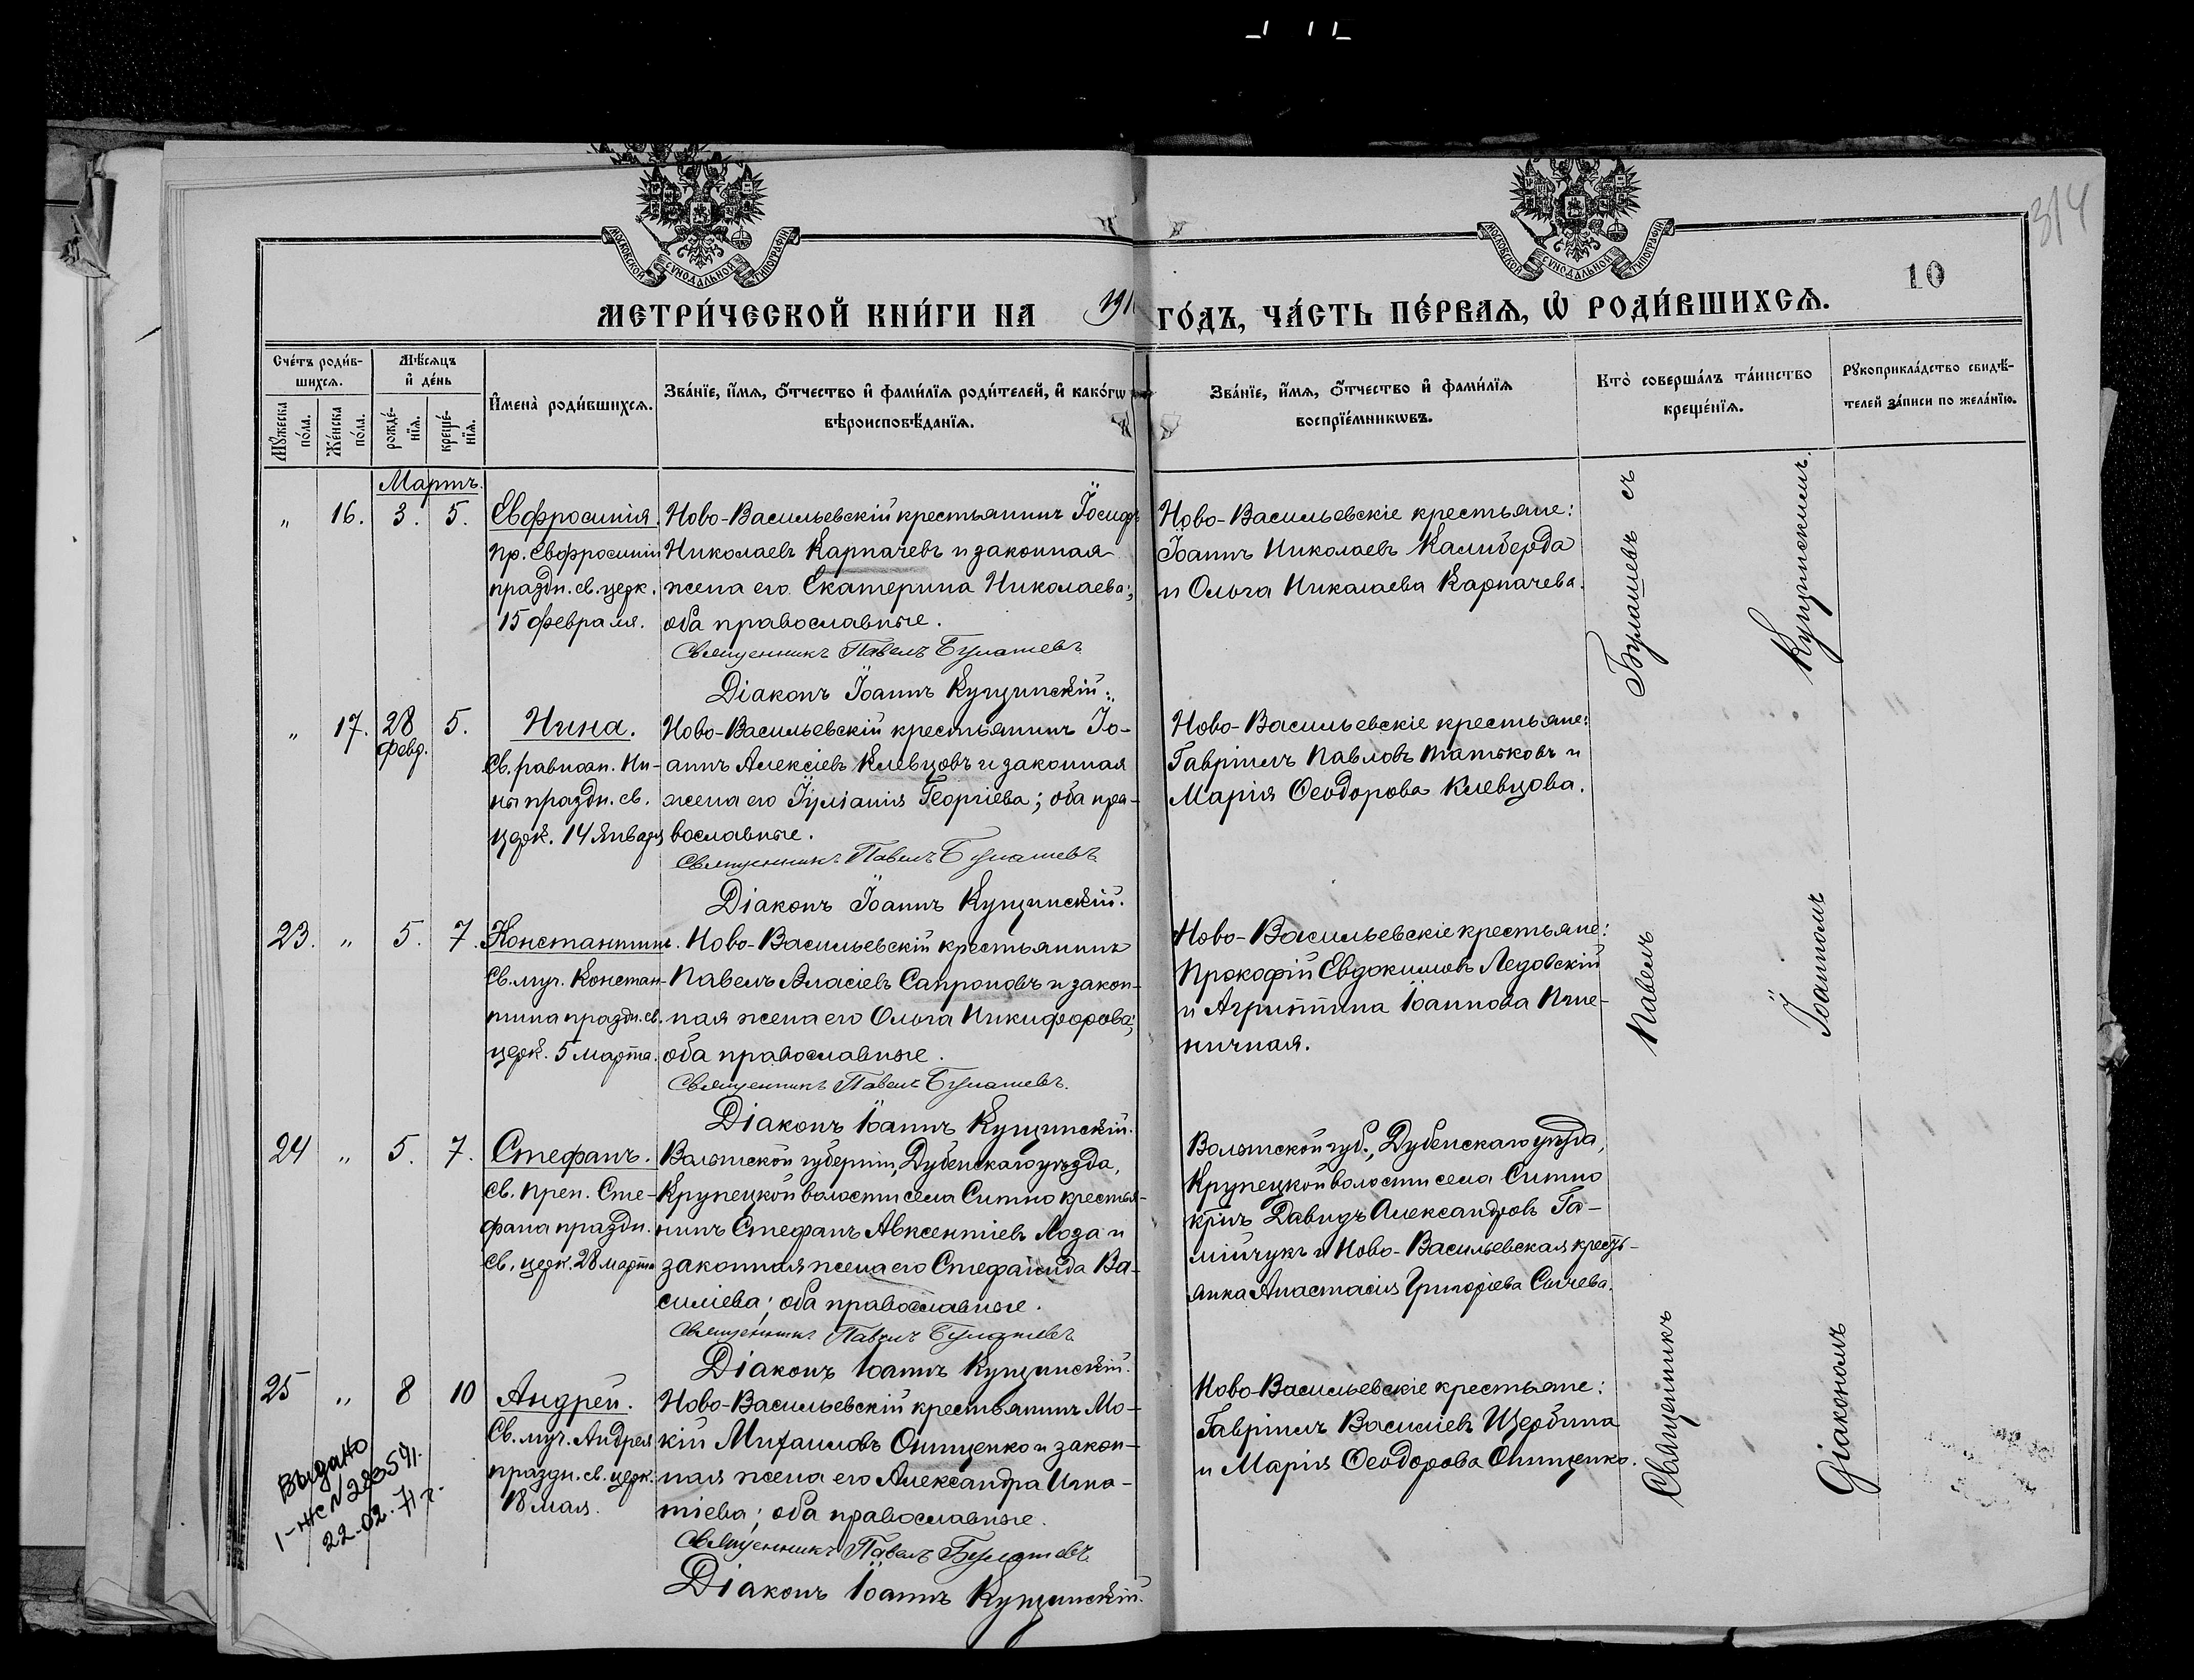 МОСКОВСКОЙ СѴНОДАЛЬНОЙ ТИПОГРАФІИ
МОСКОВСКОЙ СѴНОДАЛЬНОЙ ТИПОГРАФІИ
314
10
МЕТРИ́ЧЕСКОЙ КНИ́ГИ НА 191
ГО́ДЪ, ЧА́СТЬ ПЕ́РВАЯ, Ѡ҆ РОДИ́ВШИХСѦ.
Сче́тъ роди́в-
шихсѧ.
Мꙋ́жеска по́ла.
Же́нска по́ла.
Мѣ́сяцъ
и҆ де́нь
рожде́-
нїѧ.
креще́-
нїѧ.
И҆мена̀ роди́вшихсѧ.
Зва́нїе, и҆́мѧ, ѻ҆́тчество и҆ фами́лїѧ роди́телей, и҆ како́гѡ
вѣроисповѣ́данїѧ.
Зва́нїе, и҆́мѧ, ѻ҆́тчество и҆ фами́лїѧ
воспрїе́мникѡвъ.
Кто̀ соверша́лъ та́инство
креще́нїѧ.
Рꙋкоприкла́дство свидѣ́-
телей за́писи по жела́нїю.
Мартъ.
" 16. 3. 5. Евфросинія.
Пр. Евфросиніи
праздн. св. церк.
15 февраля.
Ново-Васильевскій крестьянинъ Іосифъ
Николаевъ Карпачевъ и законная
жена его Екатерина Николаева;
оба православные.
Священникъ Павелъ Булашевъ
Діаконъ Іоаннъ Кущинскій.
Ново-Васильевскіе крестьяне:
Іоаннъ Николаевъ Калиберда
и Ольга Николаева Карпачева.
" 17. 28 февр. 5. Нина.
Св. равноап. Ни-
ны праздн. св.
церк. 14 января
Ново-Васильевскій крестьянинъ Іо-
аннъ Алексіевъ Клевцовъ и законная
жена его Іуліанія Георгіева; оба пра-
вославные.
Священникъ Павелъ Булашевъ
Діаконъ Іоаннъ Кущинскій.
Ново-Васильевскіе крестьяне:
Гавріилъ Павловъ Татьковъ и
Марія Ѳеодорова Клевцова.
23. " 5. 7. Константинъ.
Св. муч. Констан-
тина праздн. св.
церк. 5 марта.
Ново-Васильевскій крестьянинъ
Павелъ Власіевъ Сапроновъ и закон-
ная жена его Ольга Никифорова;
оба православные.
Священникъ Павелъ Булашевъ.
Діаконъ Іоаннъ Кущинскій.
Ново-Васильевскіе крестьяне:
Прокофій Евдокимовъ Ледовскій
и Агриппина Іоаннова Пше-
ничная.
24 " 5. 7. Стефанъ.
Св. Преп. Сте-
фана праздн.
св. церк. 28 марта
Волынской губерніи, Дубенскаго уѣзда,
Крупецкой волости села Ситно крестья-
нинъ Стефанъ Авксентіевъ Лоза и
законная жена его Стефанида Ва-
силіева; оба православные.
Священникъ Павелъ Булашевъ
Діаконъ Іоаннъ Кущинскій.
Волынской губ., Дубенскаго уѣзда,
Крупецкой волости села Ситно
кр-нъ Давидъ Александровъ Га-
мійчукъ и Ново-Васильевская кресть-
янка Анастасія Григоріева Сычева.
25 " 8 10 Андрей.
Св. муч. Андрея
праздн. св. церк.
18 мая.
Ново-Васильевскій крестьянинъ Мо-
кій Михаиловъ Онищенко и закон-
ная жена его Александра Игна-
тіева; оба православные.
Священникъ Павелъ Булашевъ
Діаконъ Іоаннъ Кущинскій.
Ново-Васильевскіе крестьяне:
Гавріилъ Василіевъ Щербина
и Марія Ѳеодорова Онищенко.
Выдано
I-ЖС N 283541.
22-02-71 г.
Священникъ Павелъ Булашевъ съ
Діакономъ Іоанномъ Кущинскимъ.